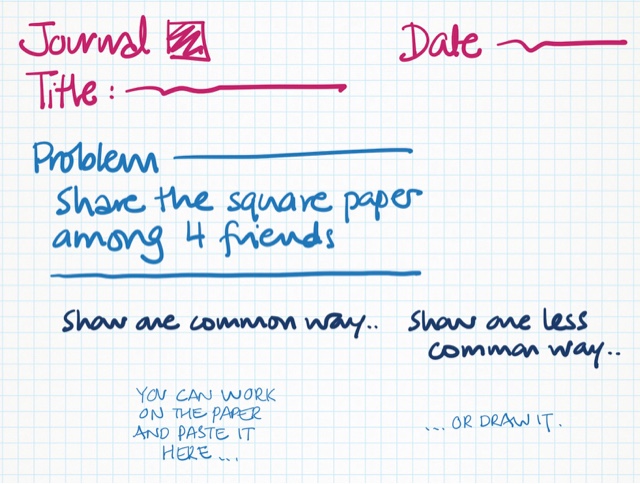 Journal
Date
Title:
Problem
Share the square paper
among 4 friends
Show one common way..
Show one less
common way..
YOU CAN WORK
ON THE PAPER
AND PASTE IT
HERE...
... OR DRAW IT.